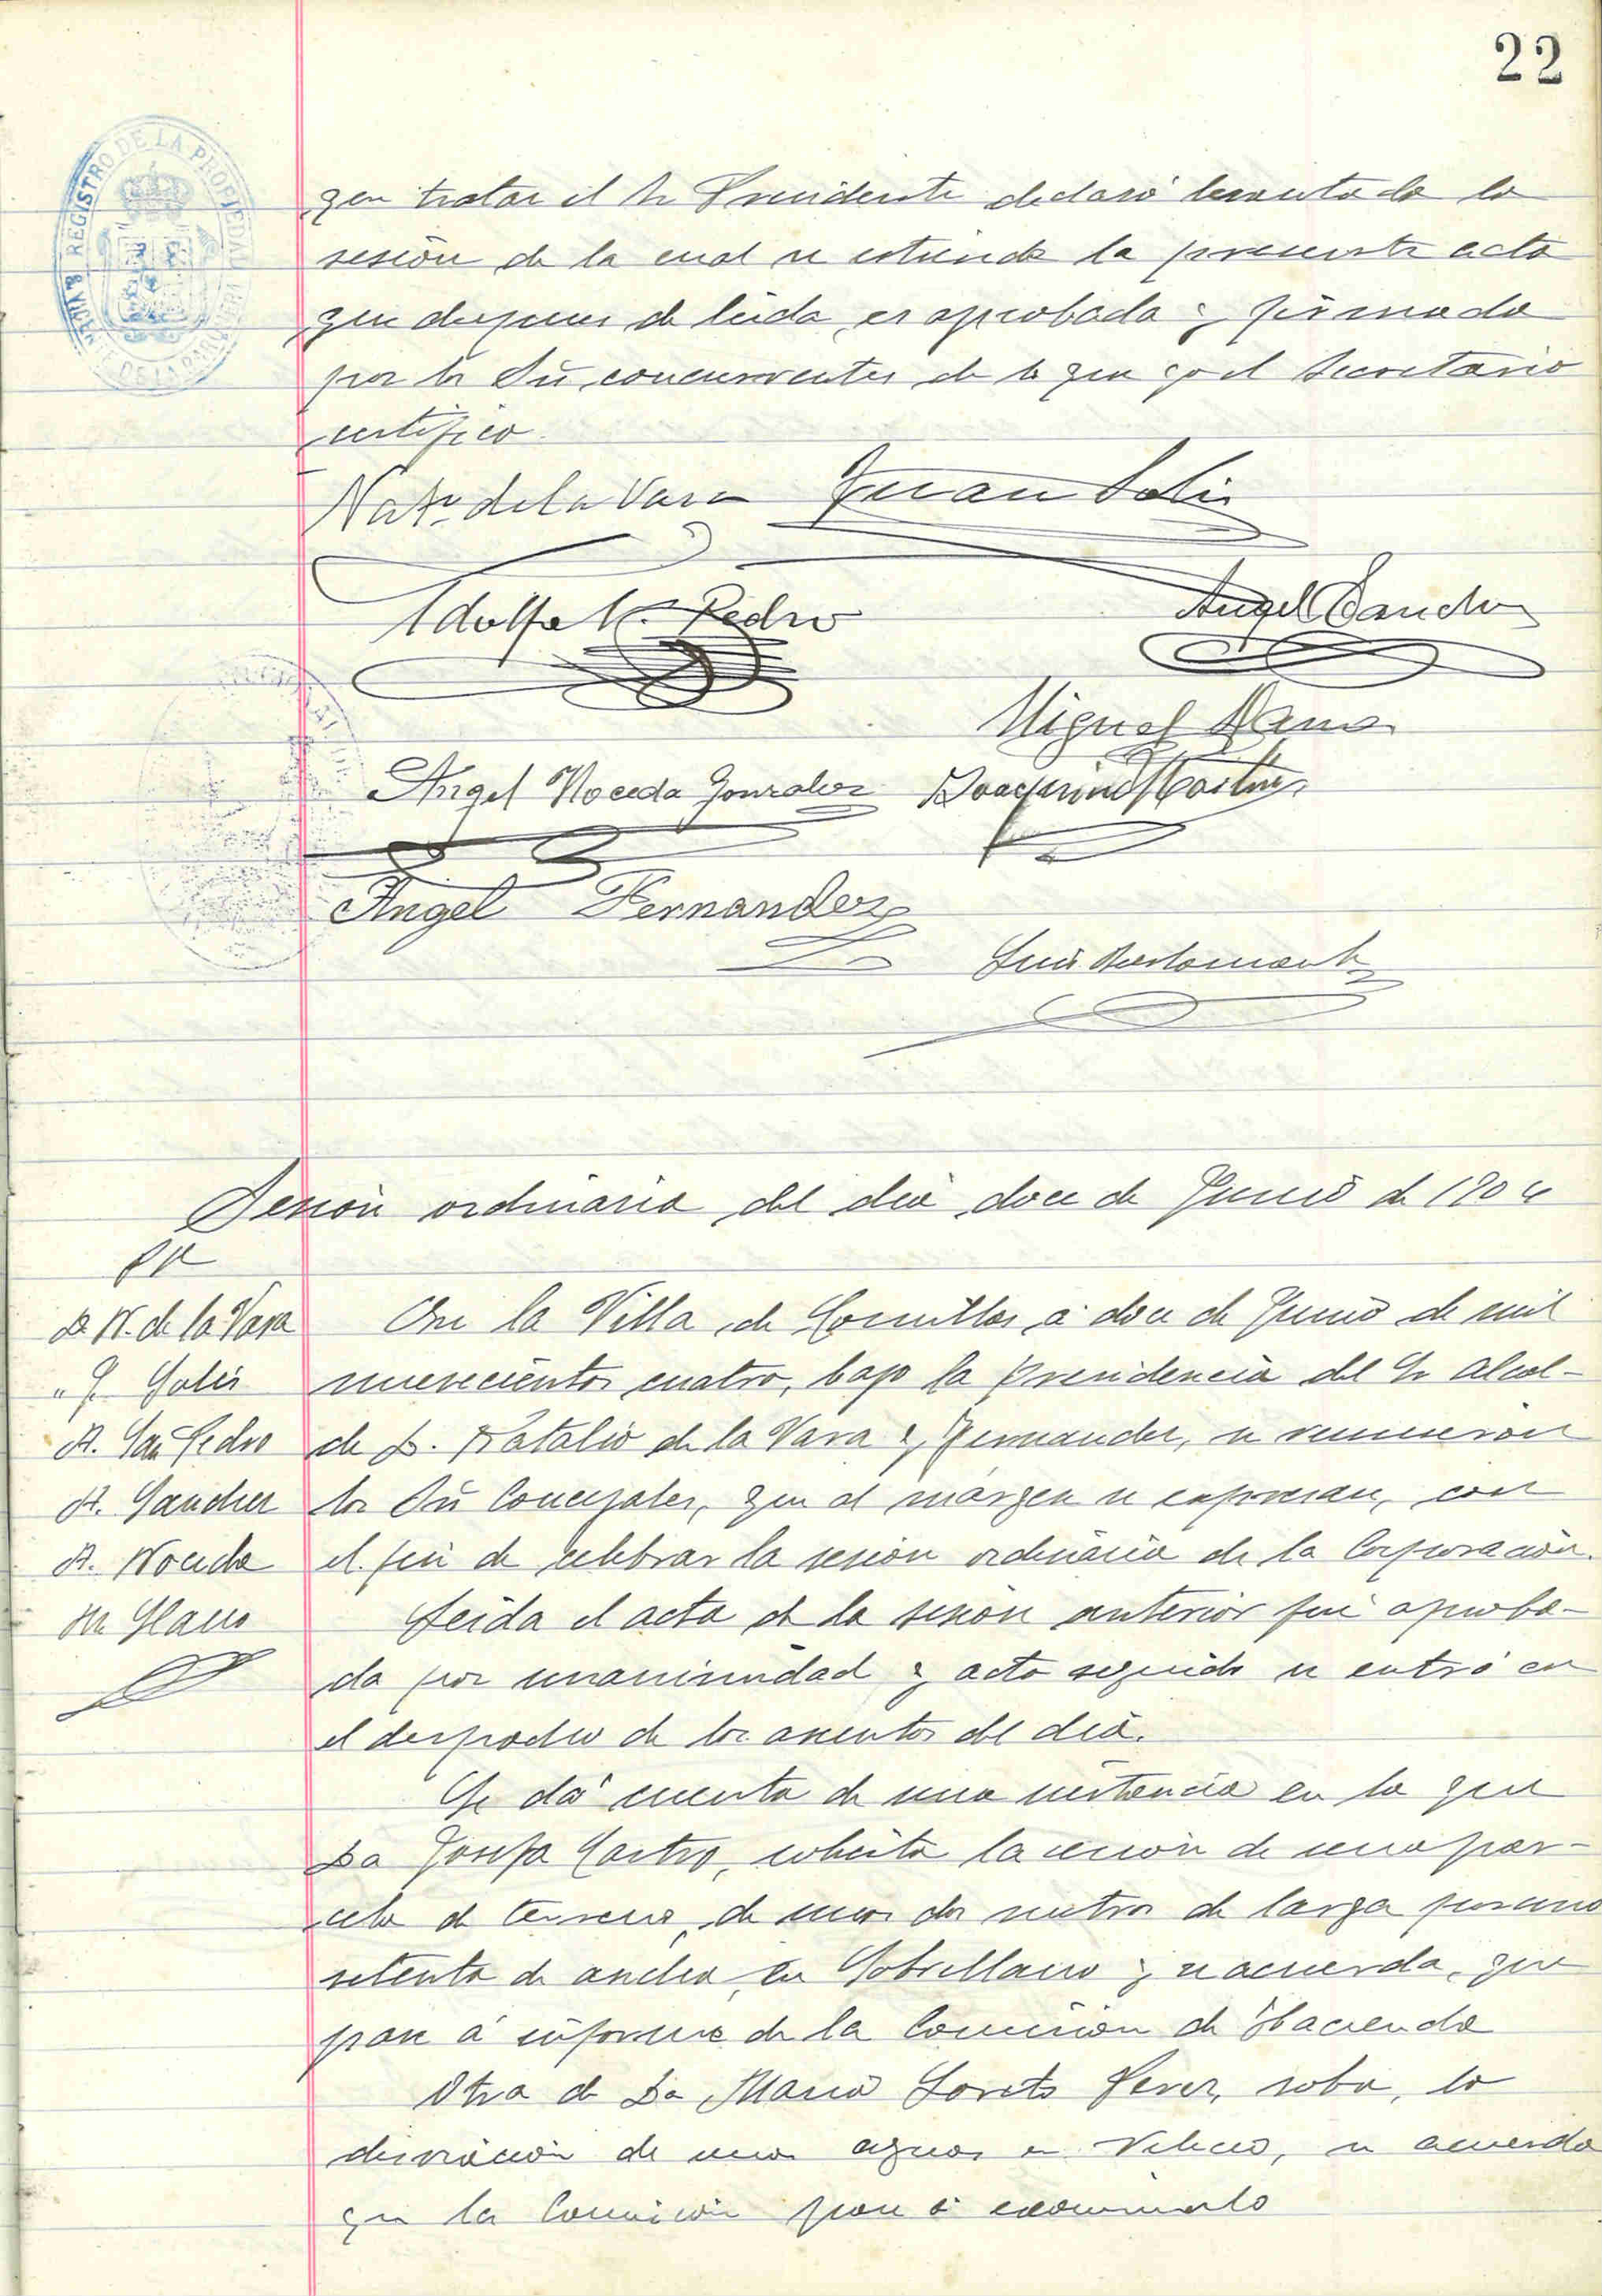 22
REGISTRO DE LA PROPIEDAD
que tratar el Sr Presidente declaró levantada la
sesión de la cual se extiende la presente acta
que despues de leida, es aprobada y firmada
por los Sres concurrentes de lo que yo el Secretario
certifico.
Nato. de la Vara Juan Solis
Adolfo S. Pedro Angel Sanchez
Miguel Llano
Angel Noceda Gonzalez Joaquin Martinez
Angel Fernandez
Luis
Sesión ordinaria del dia doce de Junio de 1904
D. N. de la Vara
" J. Solis
A. San Pedro
A. Sanchez
A. Noceda
M. Llano
En la Villa de Comillas, a doce de Junio de mil
novecientos cuatro, bajo la Presidencia del Sr Alcal-
de D. Natalio de la Vara y Fernandez, se reunieron
los Sres Concejales, que al márgen se expresan, con
el fin de celebrar la sesión ordinaria de la Corporación.
Leida el acta de la sesión anterior fué aproba-
da por unanimidad y acto seguido se entró en
el despacho de los asuntos del dia.
Se dá cuenta de una instancia en la que
Da Josefa Castro, solicita la cesión de una par-
cela de terreno, de unos dos metros de larga por uno
setenta de ancha, en Sobrellano y se acuerda, que
pase á informe de la Comisión de Hacienda
Otra de Da Maria Loreto Perez, sobre, la
desviación de unas aguas en Velecio, se acuerda
que la Comisión pase á examinarlo